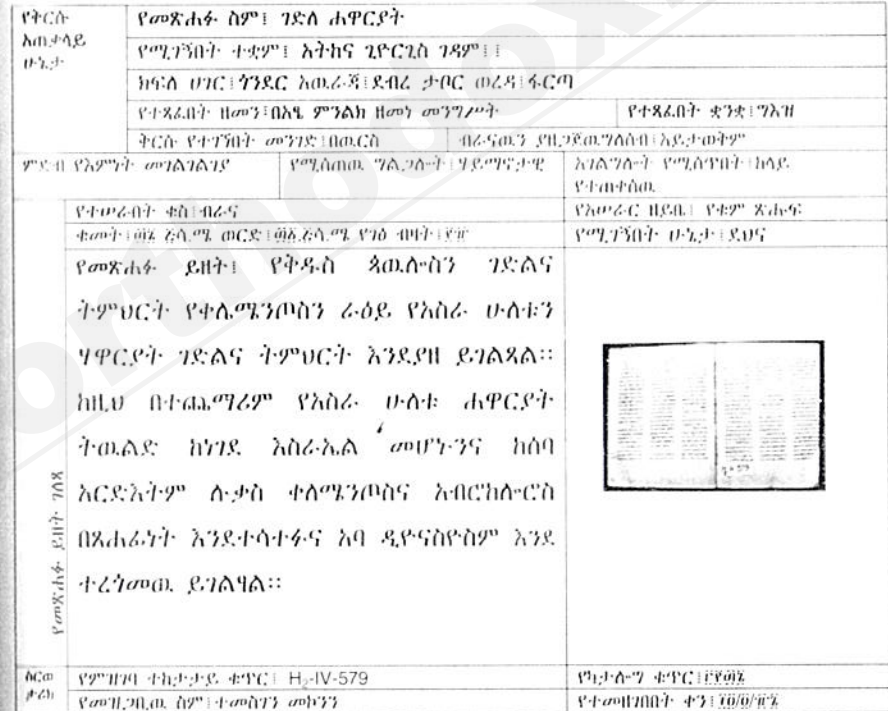 የቅርሱ አጠቃላይ ሁኔታ
የመጽሐፉ ስም፤ ገድለ ሐዋርያት
የሚገኝበት ተቋም፤ አትከና ጊዮርጊስ ገዳም፤፤
ክፍለ ሀገር፤ጎንደር አዉራጃ፤ደብረ ታቦር ወረዳ፤ፋርጣ
የተጻፈበት ዘመን፤በአፄ ምንልክ ዘመነ መንግሥት
የተጻፈበት ቋንቋ፤ግእዝ
ቅርሱ የተገኘበት መንገድ፤በዉርስ
ብራናዉን ያዘጋጀዉግለሰብ፤አይታወቅም
ምድብ የእምነት መገልገልገያ
የሚሰጠዉ ግልጋሎት፤ሃይማኖታዊ
አገልግሎት የሚሰጥበት፤ከላይ የተጠቀሰዉ
የተሠራበት ቁስ፤ብራና
የአሠራር ዘይቤ፤ የቁም ጽሑፍ
ቁመት ሳ.ሜ ወርድ ሳ.ሜ የገፅ ብዛት
የሚገኝበት ሁኔታ፤ደህና
የመጽሐፉ ይዘት ገለጻ
የመጽሐፉ ይዘት፤ የቅዱስ ጳዉሎስን ገድልና
ትምህርት የቀሌሜንጦስን ራዕይ የአስራ ሁለቱን
ሃዋርያት ገድልና ትምህርት እንደያዘ ይገልጻል፡፡
ከዚህ በተጨማሪም የአስራ ሁለቱ ሐዋርያት
ትዉልድ ከነገደ እስራኤል መሆኑንና ከሰባ
አርድእትም ሉቃስ ቀለሜንጦስና አብሮከሎሮስ
በጸሐፊነት እንደተሳተፉና አባ ዲዮናስዮስም እንደ
ተረጎመዉ ይገልፃል፡፡
ስርወ ታሪክ
የምዝገባ ተከታታይ ቁጥር፤ H₂-IV-579
የካታሎግ ቁጥር
የመዝጋቢዉ ስም፤ተመስገን መኮንን
የተመዘገበበት ቀን፤